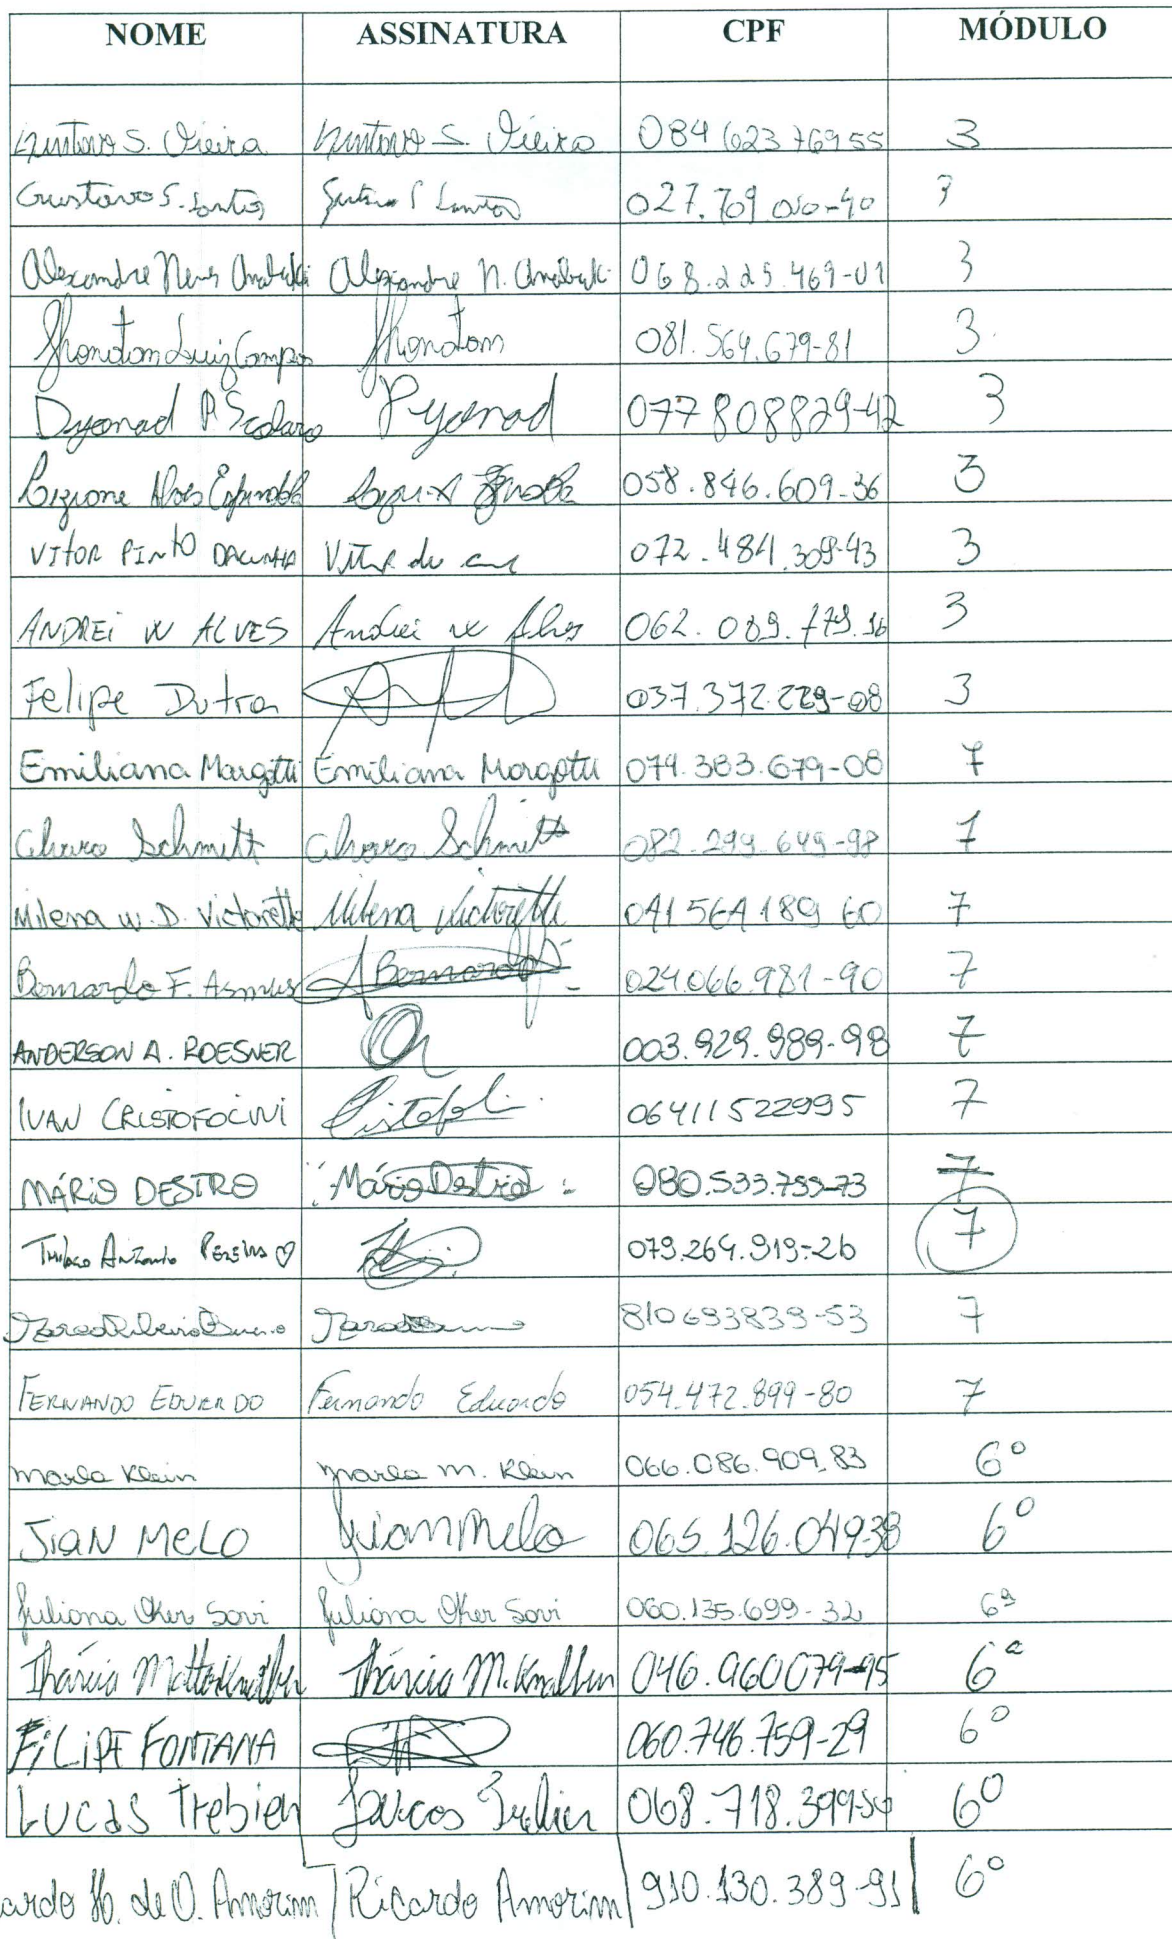 NOME ASSINATURA CPF MÓDULO
Gustavo S. Vieira Gustavo S. Vieira 084 623 769 55 3
Gustavo S. Santos S Santos 027.709 3
Alexandre Neves Alexandre N. 068.225.469-01 3
Jhonatom Luiz Campos Jhonatom 081.564.679-81 3
Dyonad P. Scolaro Dyonad 077808829-42 3
Alves Espindola 058.846.609-36 3
VITOR PINTO DACUNHA Vitor da 072.484.309-43 3
ANDREI W ALVES Andrei w Alves 062.089.779.36 3
Felipe Dutra 037.372.229-08 3
Emiliana Margotti Emiliana Margotti 074.383.679-08 7
Alvaro Schmitt Alvaro Schmitt 082.299.649-98 7
Milena W. D. Victorette Milena Victorette 041564189 60 7
Bernardo F. Asmus Bernardo 024.066.981-90 7
ANDERSON A. ROESNER 003.929.989-98 7
IVAN CRISTOFOLINI 06411522995 7
MÁRIO DESTRO Mário Destro 080.533.799-73 7
Thiago Antonio Pereira ♡ 079.264.919-26 7
Ribeiro Bueno 810693839-53 7
FERNANDO EDUARDO Fernando Eduardo 054.472.899-80 7
Marla Klein Marla M. Klein 066.086.909.83 6º
JIAN MELO Jian Melo 065.126.049-38 6º
Juliana Oker Savi Juliana Oker Savi 060.135.699-32 6ª
Thárcia M. 046.960079-95 6ª
FILIPE FONTANA 060.746.759-29 6º
LUCAS Trebien Lucas Trebien 068.718.399-54 6º
ardo H. de O. Amorim Ricardo Amorim 910.130.389-91 6º